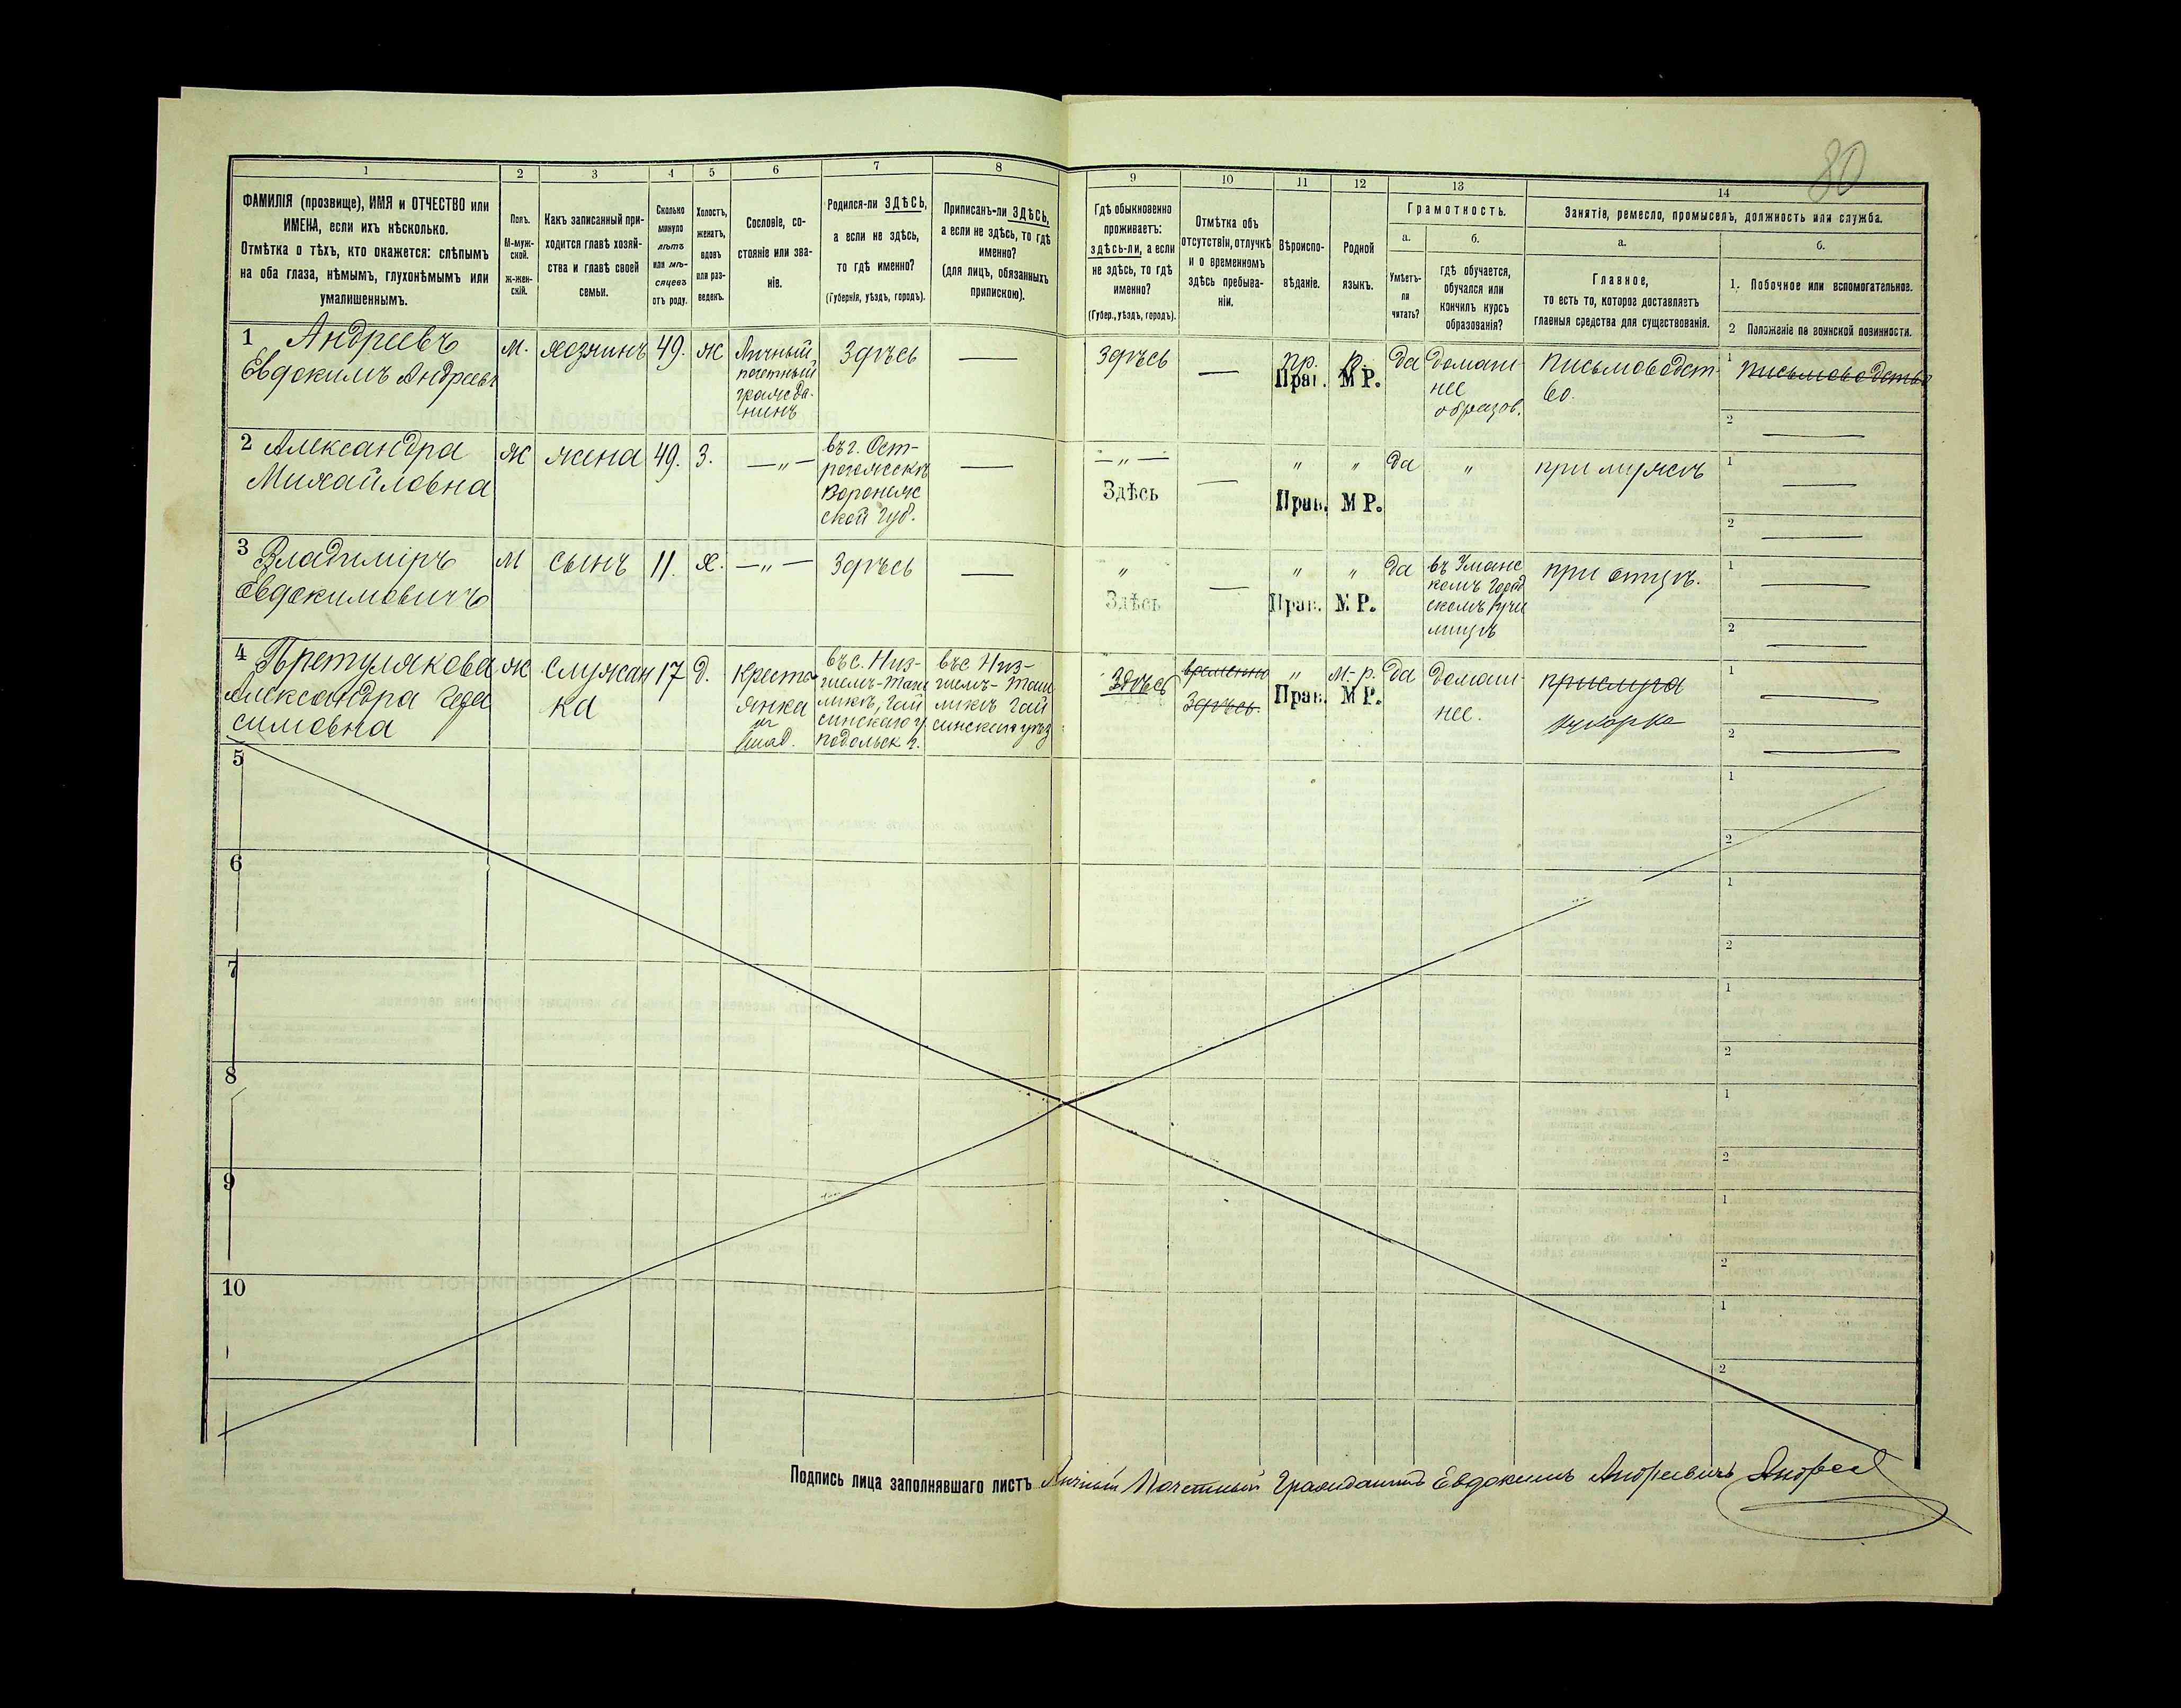 80
1
2
3
4
5
6
7
8
9
10
11
12
13
14
ФАМИЛІЯ (прозвище), ИМЯ и ОТЧЕСТВО или
ИМЕНА, если ихъ нѣсколько.
Отмѣтка о тѣхъ, кто окажется: слѣпымъ
на оба глаза, нѣмымъ, глухонѣмымъ или
умалишеннымъ.
Полъ.
М-муж-
ской.
ж-жен-
скій.
Какъ записанный при-
ходится главѣ хозяй-
ства и главѣ своей
семьи.
Сколько
минуло
лѣтъ
или мѣ-
сяцевъ
отъ роду.
Холостъ,
женатъ,
вдовъ
или раз-
веденъ.
Сословіе, со-
стояніе или зва-
ніе.
Родился-ли ЗДѢСЬ,
а если не здѣсь,
то гдѣ именно?
(Губернія, уѣздъ, городъ).
Приписанъ-ли ЗДѢСЬ,
а если не здѣсь, то гдѣ
именно?
(для лицъ, обязанныхъ
припискою).
Гдѣ обыкновенно
проживаетъ:
здѣсь-ли, а если
не здѣсь, то гдѣ
именно?
(Губер., уѣздъ, городъ).
Отмѣтка объ
отсутствіи, отлучкѣ
и о временномъ
здѣсь пребыва-
ніи.
Вѣроиспо-
вѣданіе.
Родной
языкъ.
Грамотность.
а.
Умѣетъ-
ли
читать?
б.
гдѣ обучается,
обучался или
кончилъ курсъ
образованія?
Занятіе, ремесло, промыселъ, должность или служба.
а.
Главное,
то есть то, которое доставляетъ
главныя средства для существованія.
б.
1. Побочное или вспомогательное.
2 Положеніе по воинской повинности.
1 Андреевъ
Евдокимъ Андреев
м.
хозяинъ
49.
ж
Личный
почетный
гражда-
нинъ
Здѣсь
—
Здѣсь
—
пр.
Прав.
р.
М Р.
да
домаш-
нее
образов.
Письмоводст-
во.
1 письмоводство
2 —
2 Александра
Михайловна
ж
жена
49.
З.
— „ —
въ г. Ост-
рогожскѣ
Воронеж
ской губ.
—
— „ —
Здѣсь
—
„
Прав.
„
М Р.
да
„
при мужѣ
1 —
2 —
3 Владиміръ
Евдокимовичъ
м
сынъ
11.
х.
— „ —
Здѣсь
—
„
Здѣсь
—
„
Прав.
„
М Р.
да
въ Уманс
комъ Город
скомъ Учи
лищѣ
при отцѣ.
1 —
2 —
4 Претулякова
Александра Гера
симовна
ж
служан
ка
17
д.
Кресть
янка
въ с. Низ-
гиемъ-Таш
ликѣ, Гай
синскаго у
Подольск г.
въ с. Низ-
гиемъ-Таш
ликѣ Гай
синскаго уѣз
Здѣсь
временно
Здѣсь.
„
Прав.
м.-р.
М Р.
да
домаш-
нее.
прислуга
кухарка
1 —
2 —
5
1
2
6
1
2
7
1
2
8
1
2
9
1
2
10
1
2
Подпись лица заполнявшаго листъ Личный Почетный Гражданинъ Евдокимъ Андреевичъ Андреев